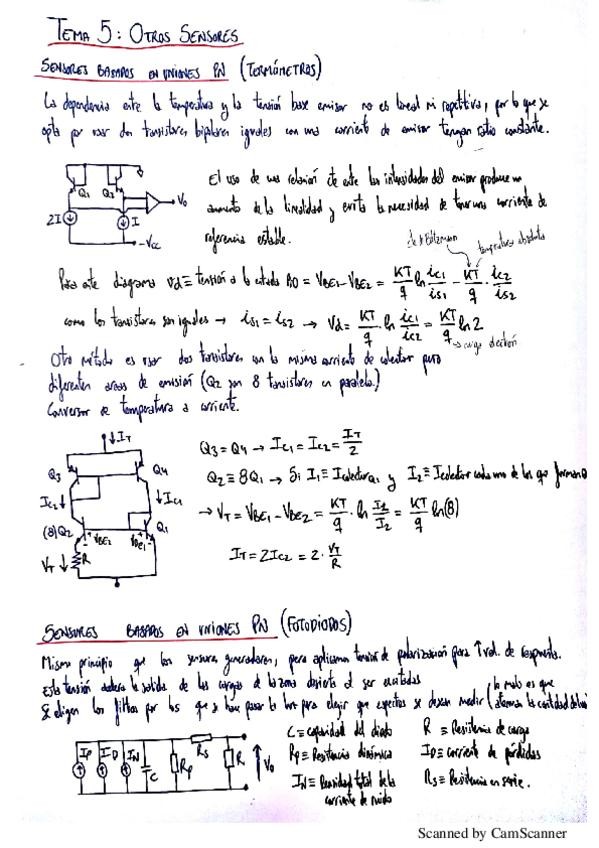 TEMA 5: OTROS SENSORES
SENSORES BASADOS EN UNIONES PN (TERMÓMETROS)
La dependencia entre la temperatura y la tensión base emisor no es lineal ni repetitiva, por lo que se
opta por usar dos transistores bipolares iguales con una corriente de emisor tengan ratio constante.
Q1 Q2 V0
2I I
-Vcc
El uso de una relación cte entre las intensidades del emisor produce un
aumento de la linealidad y evita la necesidad de tener una corriente de
referencia estable.
cte de Boltzmann temperatura absoluta
Para este diagrama Vd≡ tensión a la entrada AO = VBE1-VBE2 = KT/q ln iC1/iS1 - KT/q · iC2/iS2
como los transistores son iguales → iS1 = iS2 → Vd= KT/q · ln iC1/iC2 = KT/q ln 2
→ carga electrón
Otro método es usar dos transistores con la misma corriente de colector pero
diferentes areas de emisión (Q2 son 8 transistores en paralelo.)
Conversor de temperatura a corriente.
IT
Q3 Q4
IC2 IC1
(8) Q2 VBE2 VBE1 Q1
VT R
Q3 = Q4 → IC1 = IC2 = IT/2
Q2 ≡ 8Q1 → Si I1 ≡ IcolectorQ1 y I2 ≡ Icolector cada uno de los que forman
→ VT = VBE1 - VBE2 = KT/q · ln I1/I2 = KT/q ln(8)
IT = 2IC2 = 2 · VT/R
SENSORES BASADOS EN UNIONES PN (FOTODIODOS)
Mismo principio que los sensores generadores, pero aplicamos tensión de polarización para ↑ vel. de respuesta.
Esta tensión acelera la salida de las cargas de la zona desierta al ser excitadas
lo malo es que
Se eligen los filtros por los que se hace pasar la luz para elegir que espectros se desean medir
IP ID IN C Rp Rs R V0
C ≡ capacidad del diodo R ≡ Resistencia de carga
Rp ≡ Resistencia dinámica ID ≡ corriente de pérdidas
IN ≡ Densidad total de la Rs ≡ Resistencia en serie.
corriente de ruido
Scanned by CamScanner